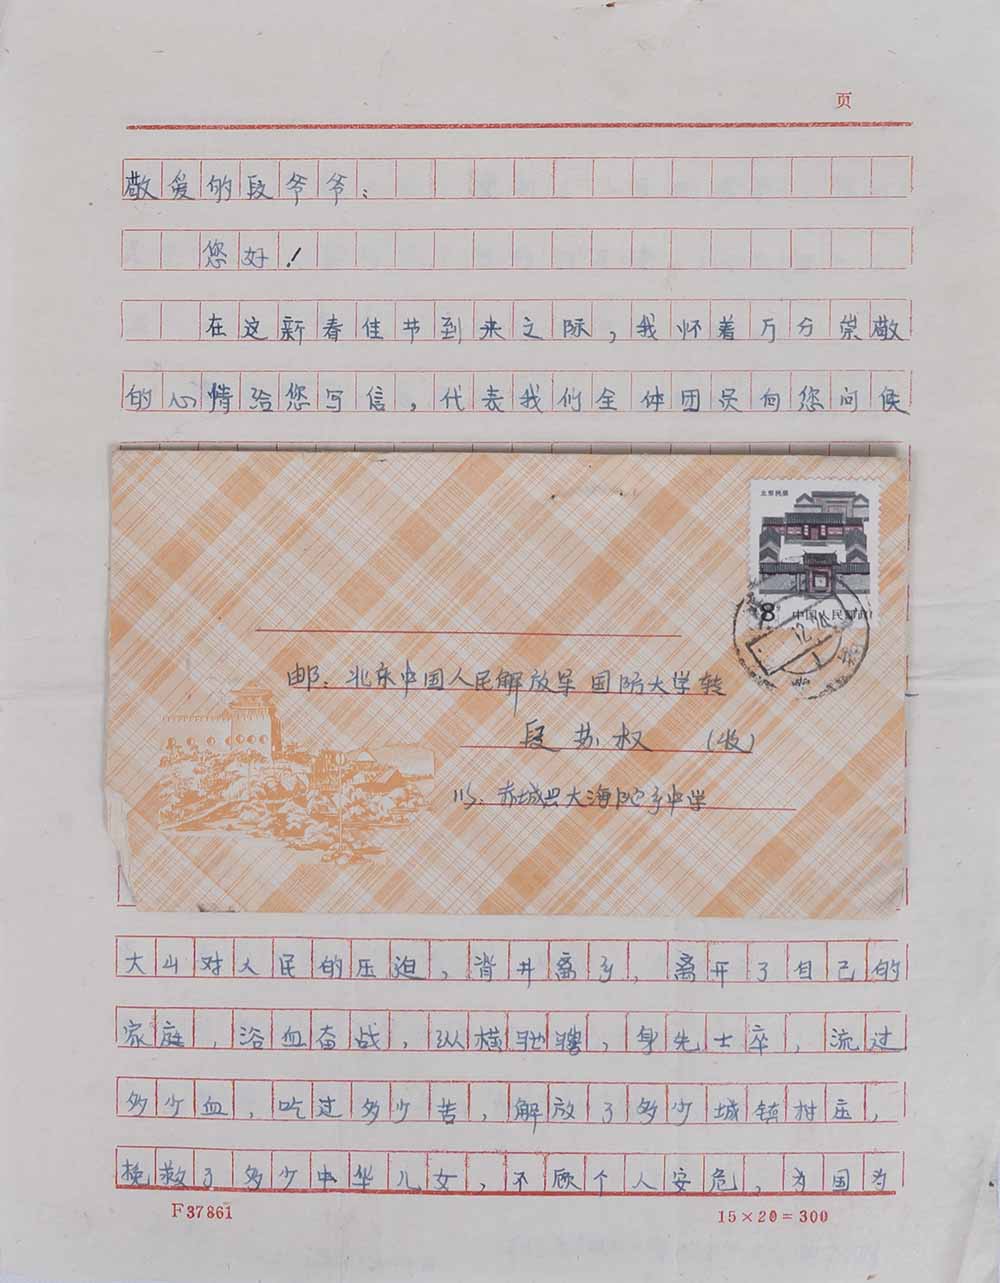 页
敬爱的段爷爷：
您好！
在这新春佳节到来之际，我怀着万分崇敬
的心情给您写信，代表我们全体团员向您问候
北京民居
8 中国人民邮政
12
邮：北京中国人民解放军国防大学转
段苏权（收）
赤城县大海陀乡中学
大山对人民的压迫，背井离乡，离开了自己的
家庭，浴血奋战，纵横驰骋，身先士卒，流过
多少血，吃过多少苦，解放了多少城镇村庄，
挽救了多少中华儿女，不顾个人安危，为国为
F37861
15×20=300